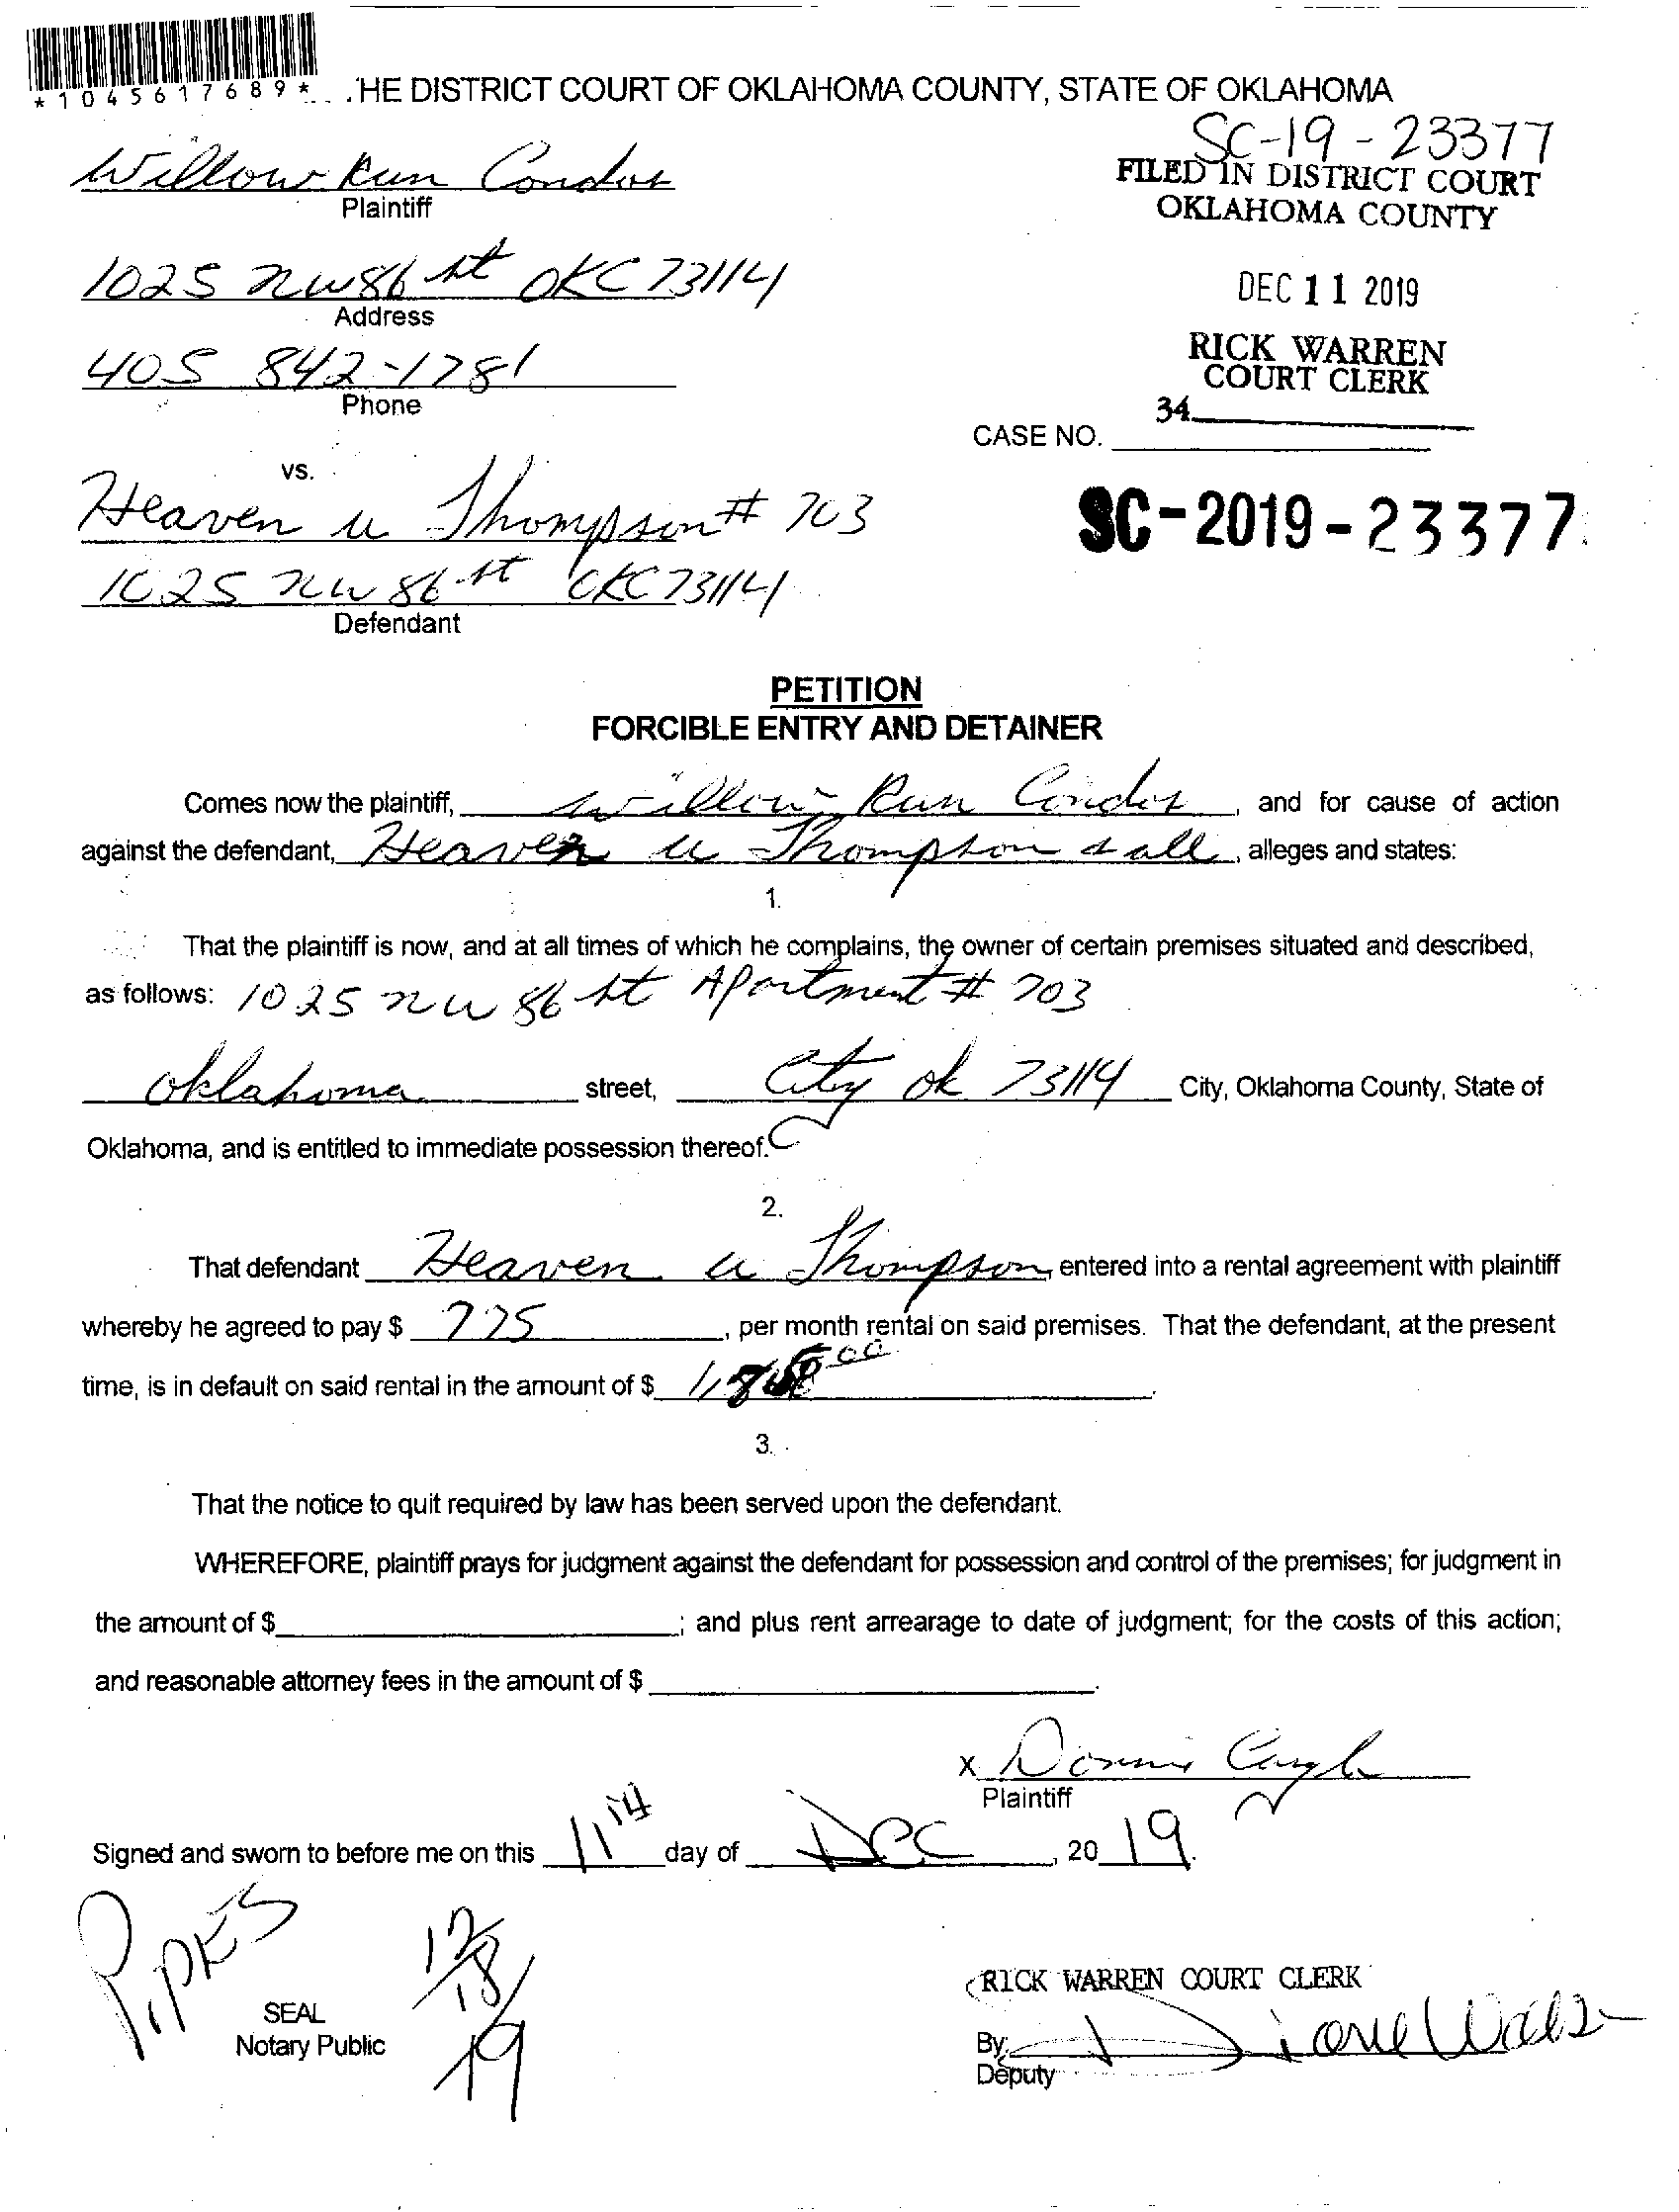 *1045617689*
HE DISTRICT COURT OF OKLAHOMA COUNTY, STATE OF OKLAHOMA
SC-19-23377
Willow Run Condos
Plaintiff
FILED IN DISTRICT COURT
OKLAHOMA COUNTY
1025 NW 86 St OKC 73114
Address
DEC 11 2019
405 842-1781
Phone
RICK WARREN
COURT CLERK
34
CASE NO.
vs.
Heaven u Thompson # 703
SC-2019-23377
1025 NW 86 St OKC 73114
Defendant
PETITION
FORCIBLE ENTRY AND DETAINER
Comes now the plaintiff, Willow Run Condos, and for cause of action
against the defendant, Heaven u Thompson & all, alleges and states:
1.
That the plaintiff is now, and at all times of which he complains, the owner of certain premises situated and described,
as follows: 1025 NW 86 St Apartment # 703
Oklahoma street, City Ok 73114 City, Oklahoma County, State of
Oklahoma, and is entitled to immediate possession thereof.
2.
That defendant Heaven u Thompson, entered into a rental agreement with plaintiff
whereby he agreed to pay $ 775, per month rental on said premises. That the defendant, at the present
time, is in default on said rental in the amount of $
3.
That the notice to quit required by law has been served upon the defendant.
WHEREFORE, plaintiff prays for judgment against the defendant for possession and control of the premises; for judgment in
the amount of $ ; and plus rent arrearage to date of judgment; for the costs of this action;
and reasonable attorney fees in the amount of $ .
x
Plaintiff
Signed and sworn to before me on this 11th day of Dec, 2019.
Pipkes
12/18/19
SEAL
Notary Public
RICK WARREN COURT CLERK
By: Diane
Deputy